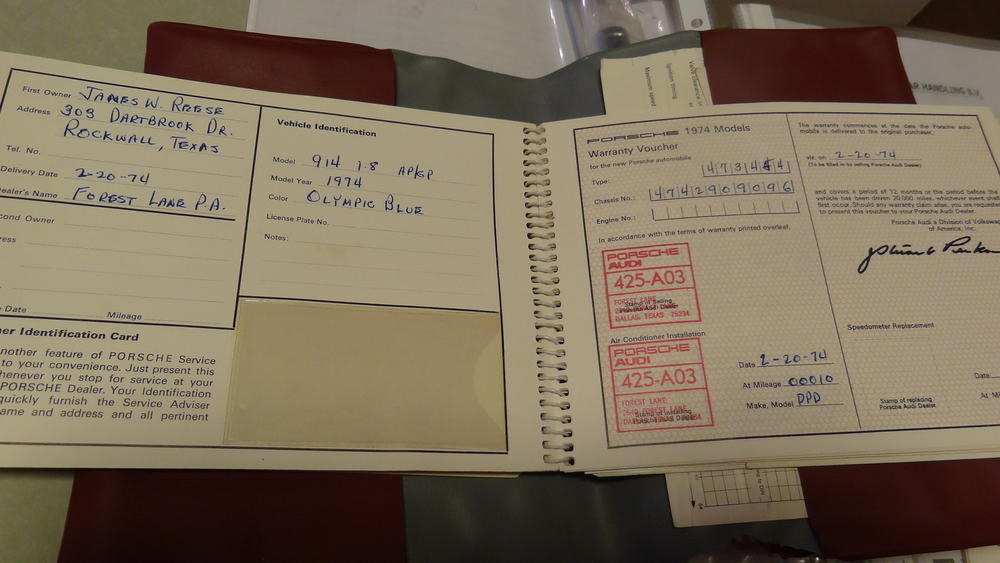 First Owner JAMES W. REESE
Address 303 DARTBROOK DR.
ROCKWALL, TEXAS
Tel. No.
Delivery Date 2-20-74
ealer's Name FOREST LANE P.A.
cond Owner
ress
e Date Mileage
er Identification Card
nother feature of PORSCHE Service
to your convenience. Just present this
henever you stop for service at your
PORSCHE Dealer. Your Identification
quickly furnish the Service Adviser
ame and address and all pertinent
Vehicle Identification
Model 914 1.8 AP/GP
Model Year 1974
Color OLYMPIC BLUE
License Plate No.
Notes:
PORSCHE 1974 Models
Warranty Voucher
for the new Porsche automobile
Type: 473444
Chassis No.: 4742909096
Engine No.:
In accordance with the terms of warranty printed overleaf.
PORSCHE
AUDI
425-A03
FOREST LANE
Stamp of Selling
Porsche Audi Dealer
DALLAS, TEXAS 75234
Air Conditioner Installation
PORSCHE
AUDI
425-A03
FOREST LANE
Stamp of Installing
Porsche Audi Dealer
Date 2-20-74
At Mileage 00010
Make, Model DPD
The warranty commences at the date the Porsche auto-
mobile is delivered to the original purchaser,
viz. on 2-20-74
(To be filled in by selling Porsche Audi Dealer)
and covers a period of 12 months or the period before the
vehicle has been driven 20,000 miles, whichever event shall
first occur. Should any warranty claim arise, you are requested
to present this voucher to your Porsche Audi Dealer.
Porsche Audi a Division of Volkswag
of America, Inc.
Speedometer Replacement
Date
At Mi
Stamp of replacing
Porsche Audi Dealer
Valve clearance in
Ignition timing
Maximum speed
AR HANDLING B.V.